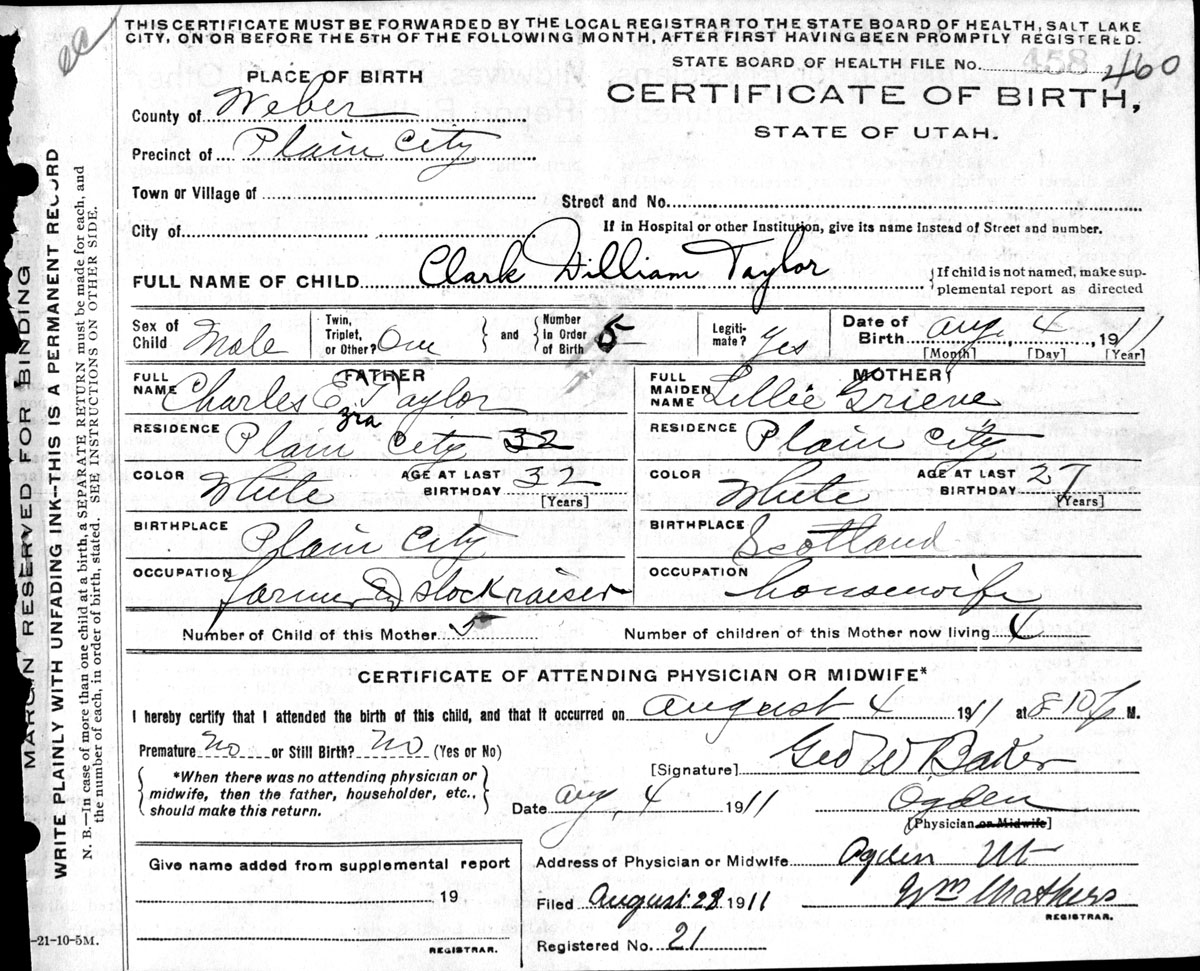 THIS CERTIFICATE MUST BE FORWARDED BY THE LOCAL REGISTRAR TO THE STATE BOARD OF HEALTH, SALT LAKE
CITY, ON OR BEFORE THE 5TH OF THE FOLLOWING MONTH, AFTER FIRST HAVING BEEN PROMPTLY REGISTERED.
STATE BOARD OF HEALTH FILE No. 458 460
PLACE OF BIRTH
CERTIFICATE OF BIRTH,
STATE OF UTAH.
County of Weber
Precinct of Plain City
Town or Village of
Street and No.
City of
If in Hospital or other Institution, give its name instead of Street and number.
FULL NAME OF CHILD Clark William Taylor
{If child is not named, make sup-
plemental report as directed
Sex of Child Male
Twin, Triplet, or Other? One } and { Number In Order of Birth 5
Legiti-mate? Yes
Date of Birth Aug. 4, 1911
[Month] [Day] [Year]
FATHER
FULL NAME Charles E. Taylor
zra
RESIDENCE Plain City 32
COLOR White AGE AT LAST BIRTHDAY 32 [Years]
BIRTHPLACE Plain City
OCCUPATION farmer & stockraiser
MOTHER
FULL MAIDEN NAME Lillie Grieve
RESIDENCE Plain City
COLOR White AGE AT LAST BIRTHDAY 27 [Years]
BIRTHPLACE Scotland
OCCUPATION housewife
Number of Child of this Mother 5 Number of children of this Mother now living 4
CERTIFICATE OF ATTENDING PHYSICIAN OR MIDWIFE*
I hereby certify that I attended the birth of this child, and that it occurred on August 4 1911 at 8 10 M.
Premature No or Still Birth? No (Yes or No)
{ *When there was no attending physician or
midwife, then the father, householder, etc.,
should make this return. }
[Signature] Geo W Baker
Date Aug, 4 1911 Ogden
[Physician or Midwife]
Give name added from supplemental report
19
REGISTRAR.
Address of Physician or Midwife Ogden Ut
Filed August 28 1911 Wm Mathers
REGISTRAR.
Registered No. 21
-21-10-5M.
MARGIN RESERVED FOR BINDING
WRITE PLAINLY WITH UNFADING INK--THIS IS A PERMANENT RECORD
N. B.—In case of more than one child at a birth, a SEPARATE RETURN must be made for each, and
the number of each, in order of birth, stated. SEE INSTRUCTIONS ON OTHER SIDE.